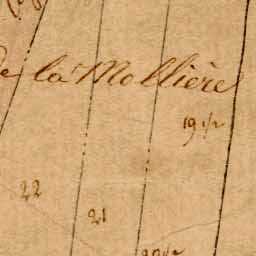 de la Mollière
19 1/2
22
21